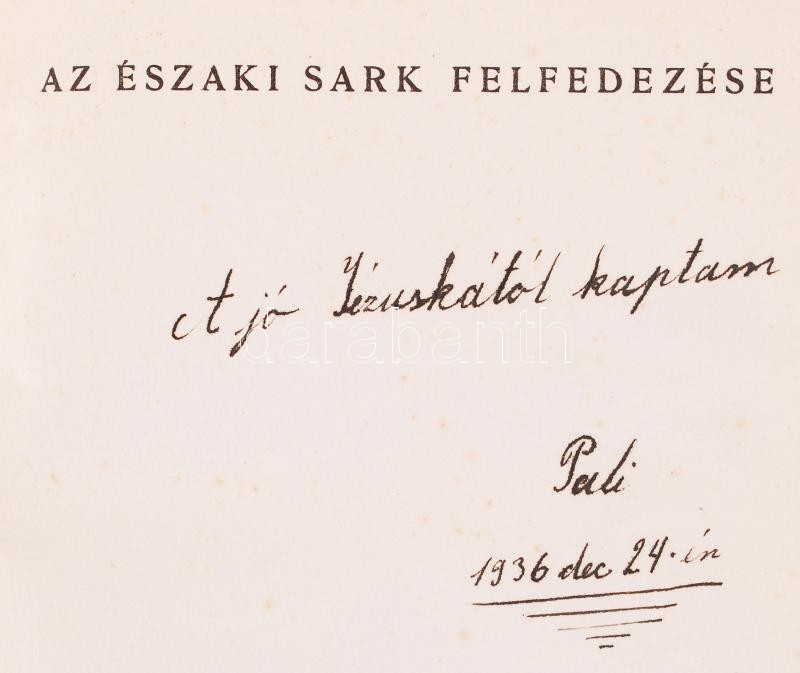 AZ ÉSZAKI SARK FELFEDEZÉSE
A jó Jézuskától kaptam
darabanth
Pali
1936 dec 24.-én